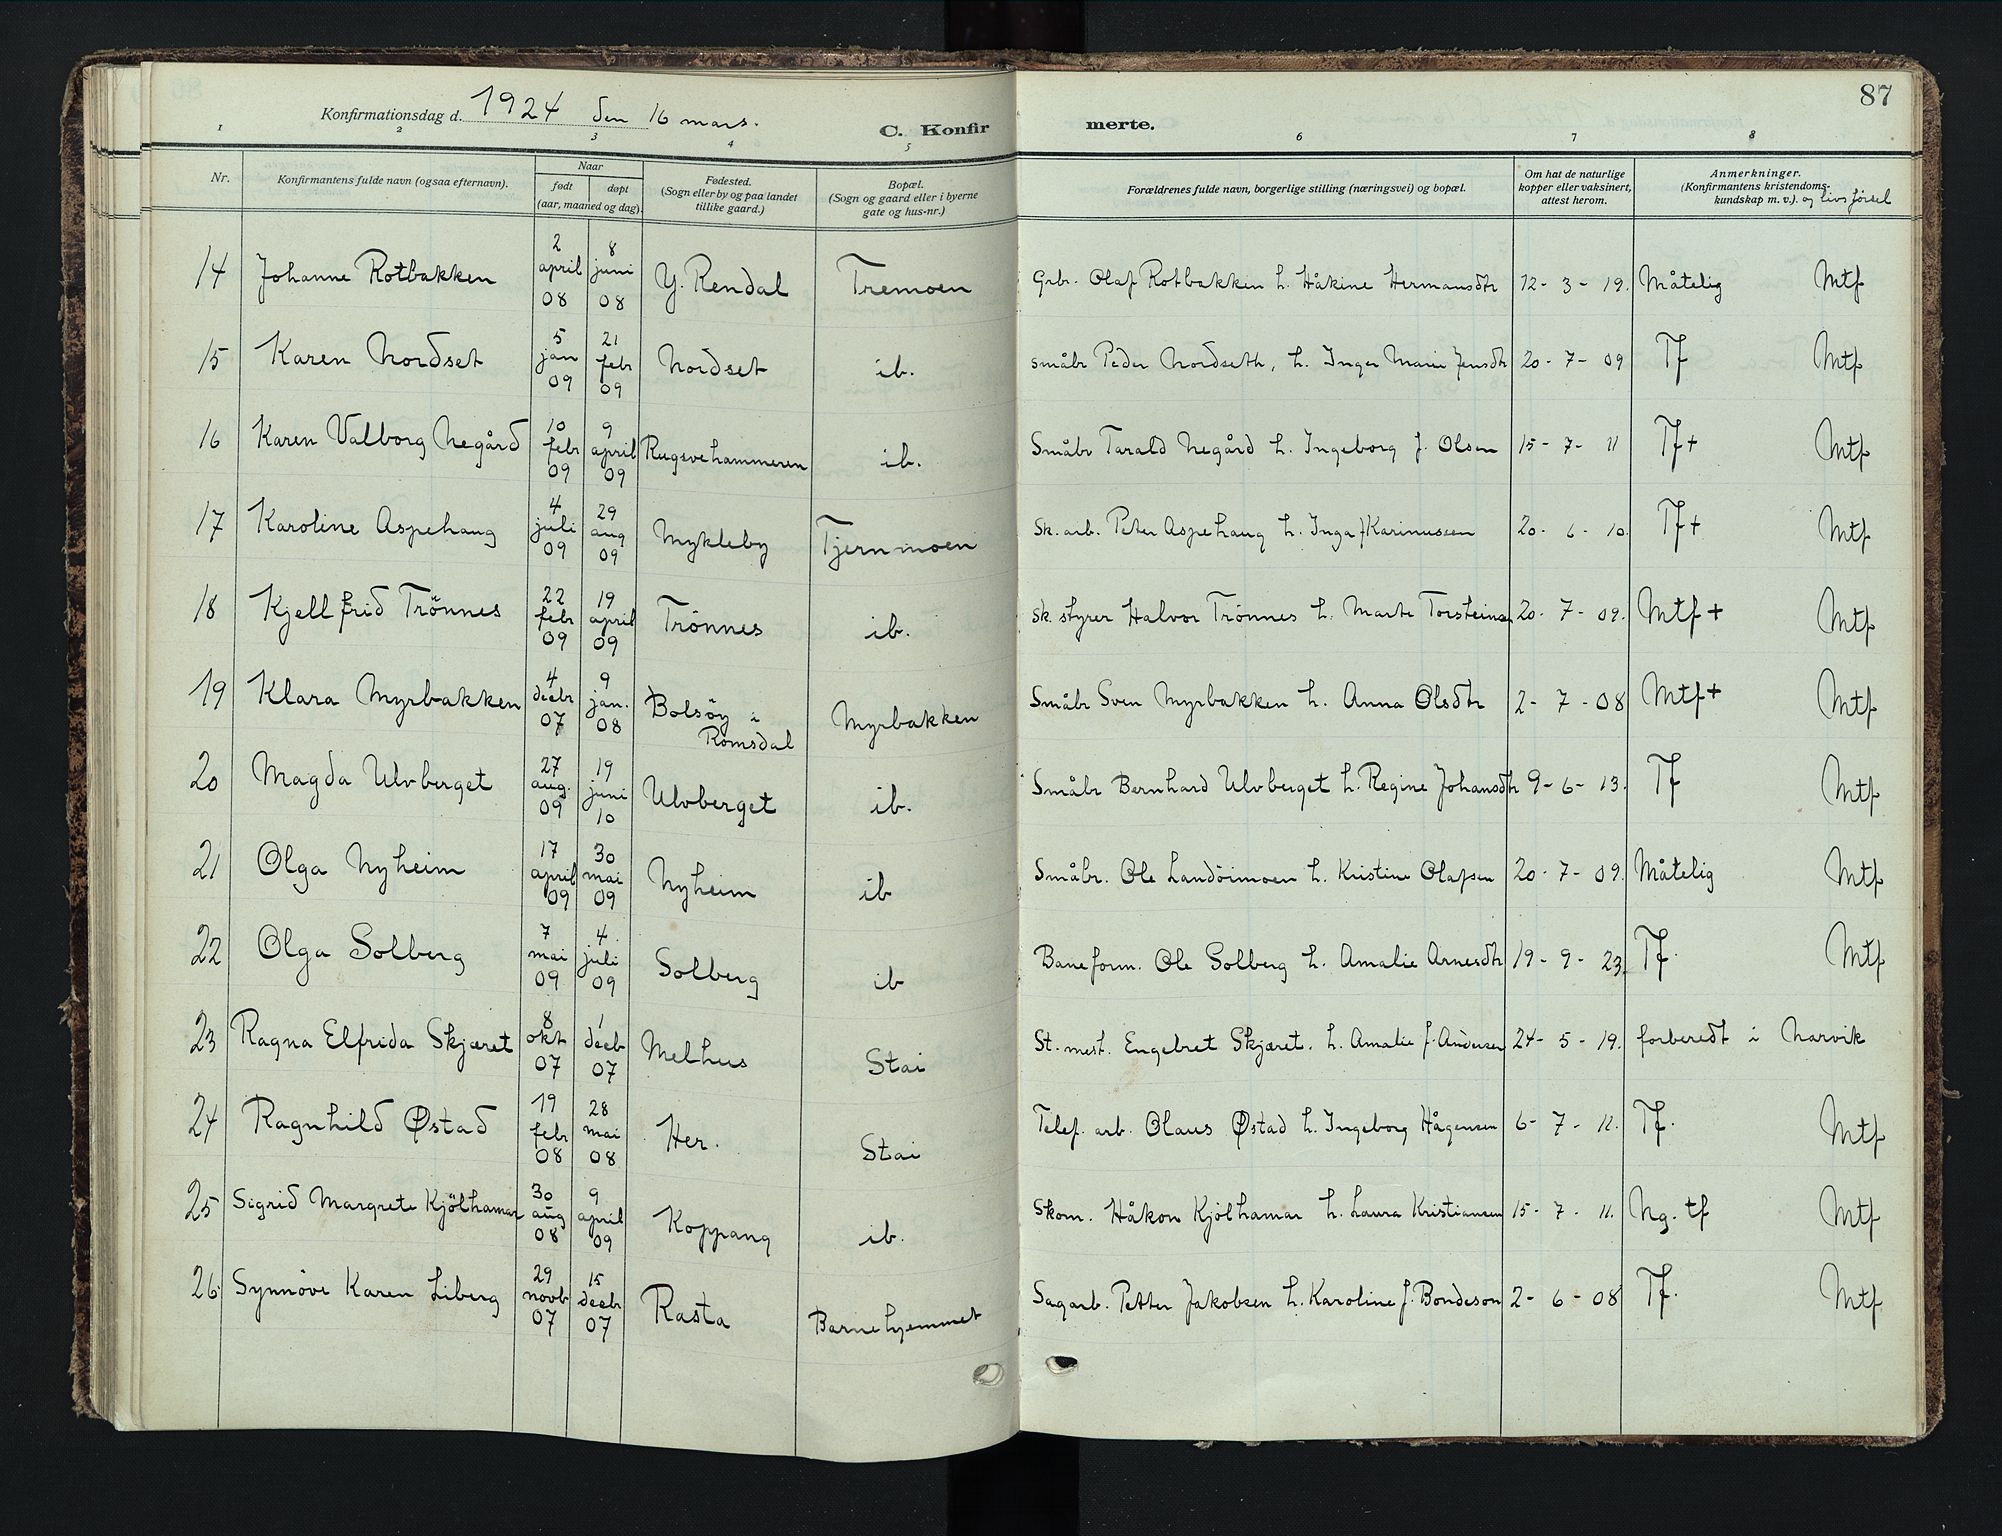 87
Konfirmationsdag d. 1924 den 16 mars.
C. Konfirmerte.
1 2 3 4 5 6 7 8
Nr. Konfirmantens fulde navn (ogsaa efternavn). Naar født døpt (aar, maaned og dag). Fødested. (Sogn eller by og paa landet tillike gaard.) Bopæl. (Sogn og gaard eller i byerne gate og hus-nr.) Forældrenes fulde navn, borgerlige stilling (næringsvei) og bopæl. Om hat de naturlige kopper eller vaksinert, attest herom. Anmerkninger. (Konfirmantens kristendoms-kundskap m. v.). og livsførsel
14 Johanne Rotbakken 2 april 08 8 juni 08 Y. Rendal Tremoen Grbr. Olaf Rotbakken h. Håkine Hermansdtr 12-3-19. Måtelig Mtf
15 Karen Nordset 5 jan 09 21 febr 09 Nordset ib. småbr Peder Nordseth, h. Inger Marie Jensdtr 20-7-09 Tf Mtf
16 Karen Valborg Negård 10 febr 09 9 april 09 Rugsvehammeren ib. Småbr Tarald Negård h. Ingeborg f. Olsen 15-7-11 Tf+ Mtf
17 Karoline Aspehaug 4 juli 09 29 aug 09 Mykleby Tjernmoen Sk. arb. Peter Aspehaug h. Inga f Karinussen 20-6-10. Tf+ Mtf
18 Kjellfrid Trönnes 22 febr 09 19 april 09 Trönnes ib. Sk. styrer Halvor Trönnes h. Marte Torsteinsen 20-7-09. Mtf+ Mtf
19 Klara Myrbakken 4 decbr 07 9 jan. 08 Bolsöy i Romsdal Myrbakken Småbr Sven Myrbakken h. Anna Olsdtr 2-7-08 Mtf+ Mtf
20 Magda Ulvberget 27 aug. 09 19 juni 10 Ulvberget ib. Småbr Bernhard Ulvberget h. Regine Johansdtr 9-6-13. Tf Mtf
21 Olga Nyheim 17 april 09 30 mai 09 Nyheim ib Småbr. Ole Landöimoen h. Kristine Olafsen 20-7-09. Måtelig Mtf
22 Olga Solberg 7 mai 09 4 juli 09 Solberg ib Baneform. Ole Solberg h. Amalie Arnesdtr 19-9-23. Tf. Mtf
23 Ragna Elfrida Skjæret 8 okt 07 1 decb 07 Melhus Stai St. mest. Engebret Skjæret. h. Amalie f. Andersen 24-5-19. forberedt i Narvik
24 Ragnhild Østad 19 febr 08 28 mai 08 Her. Stai Telef. arb. Olaus Østad h. Ingeborg Hågensen 6-7-11. Tf. Mtf
25 Sigrid Margrete Kjölhamar 30 aug 08 9 april 09 Koppang ib. Skom. Håkon Kjölhamar h. Laura Kristiansen 15-7-11. Ng. tf Mtf
26 Synnöve Karen Liberg 29 novb 07 15 decbr 07 Rasta Barnehjemmet Sagarb. Petter Jakobsen h. Karoline f. Bondeson 2-6-08 Tf. Mtf